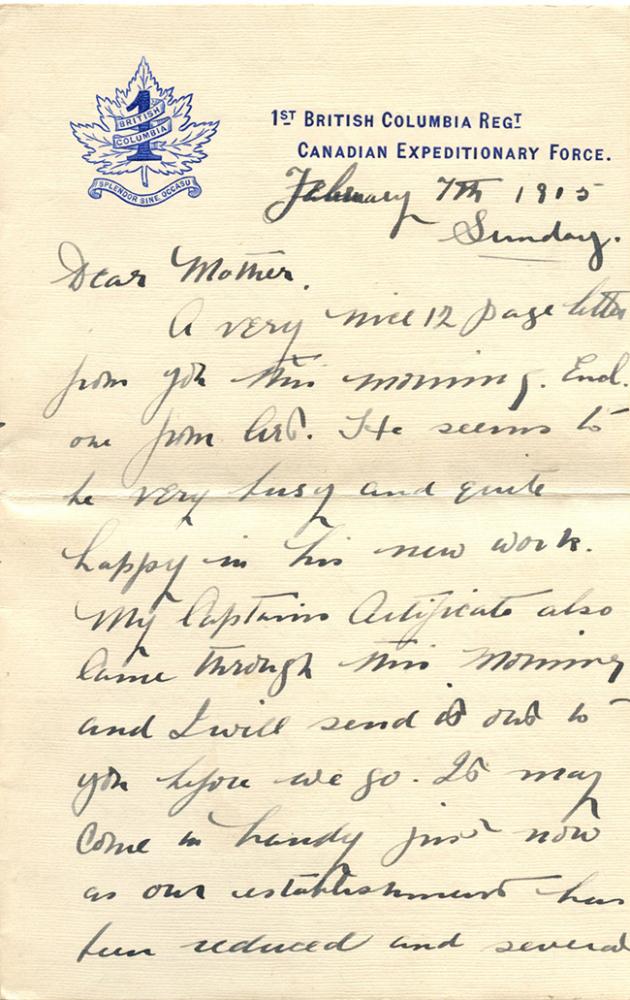 1
BRITISH
COLUMBIA
SPLENDOR SINE OCCASU
1ST BRITISH COLUMBIA REGT
CANADIAN EXPEDITIONARY FORCE.
February 7th 1915
Sunday.
Dear Mother.
A very nice 12 page letter
from you this morning. Encl.
one from. He seems to
be very busy and quite
happy in his new work.
My Captains Certificate also
came through this morning
and I will send it out to
you before we go. It may
come in handy just now
as our establishment has
been reduced and several